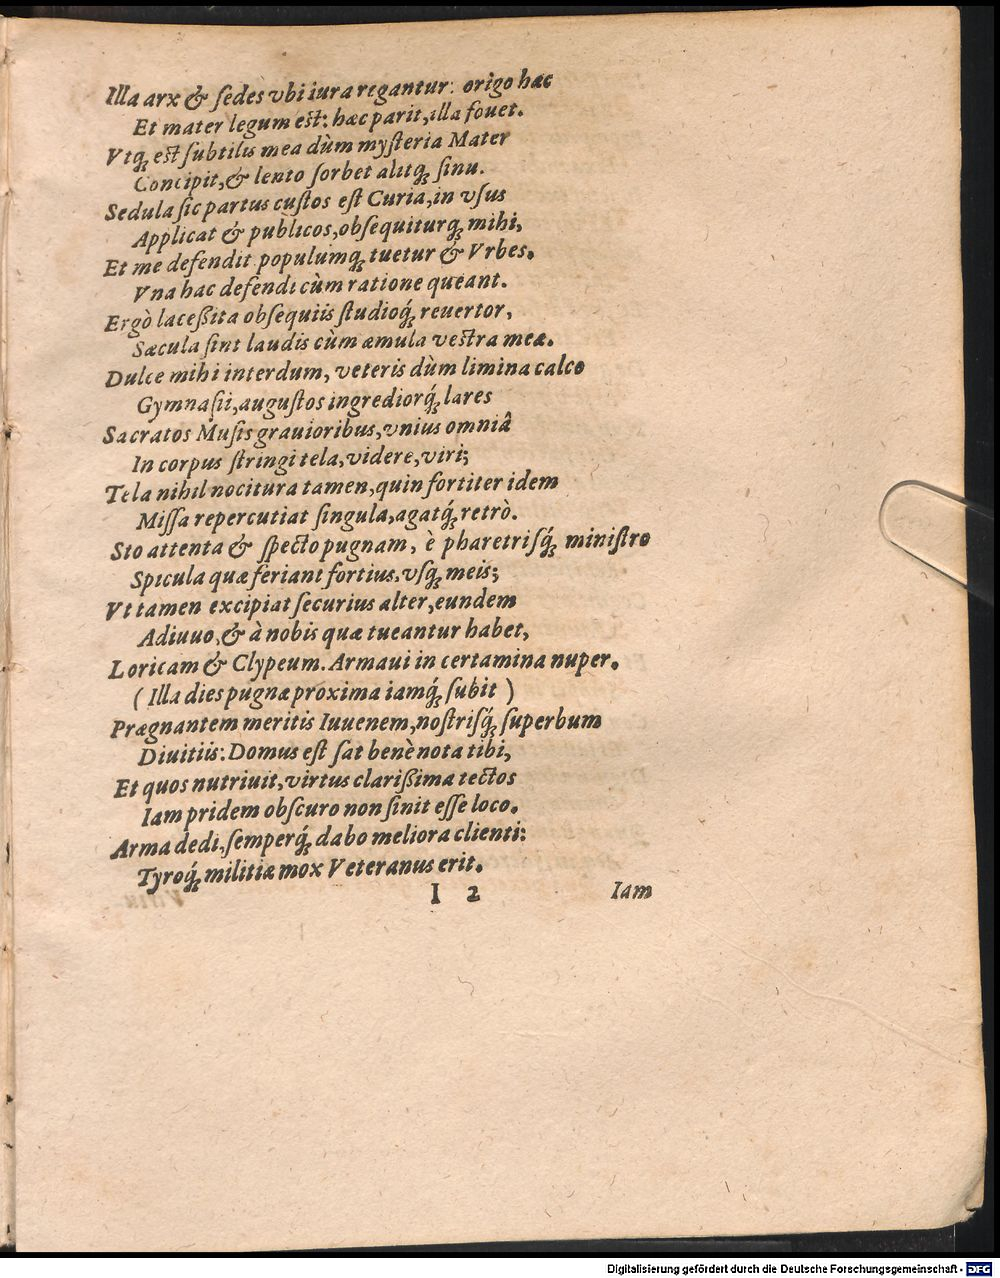 Illa arx & ſedes vbi iura regantur: origo hæc
Et mater legum eſt: hæc parit, illa fouet.
Vtq́; eſt ſubtilis mea dùm myſteria Mater
Concipit, & lento ſorbet alitq́; ſinu.
Sedula ſic partus cuſtos eſt Curia, in vſus
Applicat & publicos, obſequiturq́; mihi,
Et me defendit populumq́; tuetur & Vrbes.
Vna hac defendi cùm ratione queant.
Ergò laceßita obſequiis ſtudioq́; reuertor,
Sæcula ſint laudis cùm æmula veſtra meæ.
Dulce mihi interdum, veteris dùm limina calco
Gymnaſii, auguſtos ingrediorq́; lares
Sacratos Muſis grauioribus, vnius omniâ
In corpus ſtringi tela, videre, viri;
Tela nihil nocitura tamen, quin fortiter idem
Miſſa repercutiat ſingula, agatq́; retrò.
Sto attenta & ſpecto pugnam, è pharetriſq́; miniſtro
Spicula quæ feriant fortius, vſq́; meis;
Vt tamen excipiat ſecurius alter, eundem
Adiuuo, & à nobis quæ tueantur habet,
Loricam & Clypeum. Armaui in certamina nuper.
( Illa dies pugnæ proxima iamq́; ſubit )
Prægnantem meritis Iuuenem, noſtriſq́; ſuperbum
Diuitiis: Domus eſt ſat benè nota tibi,
Et quos nutriuit, virtus clarißima tectos
Iam pridem obſcuro non ſinit eſſe loco.
Arma dedi, ſemperq́; dabo meliora clienti:
Tyroq́; militiæ mox Veteranus erit.
I 2 Iam
Digitalisierung gefördert durch die Deutsche Forschungsgemeinschaft - DFG